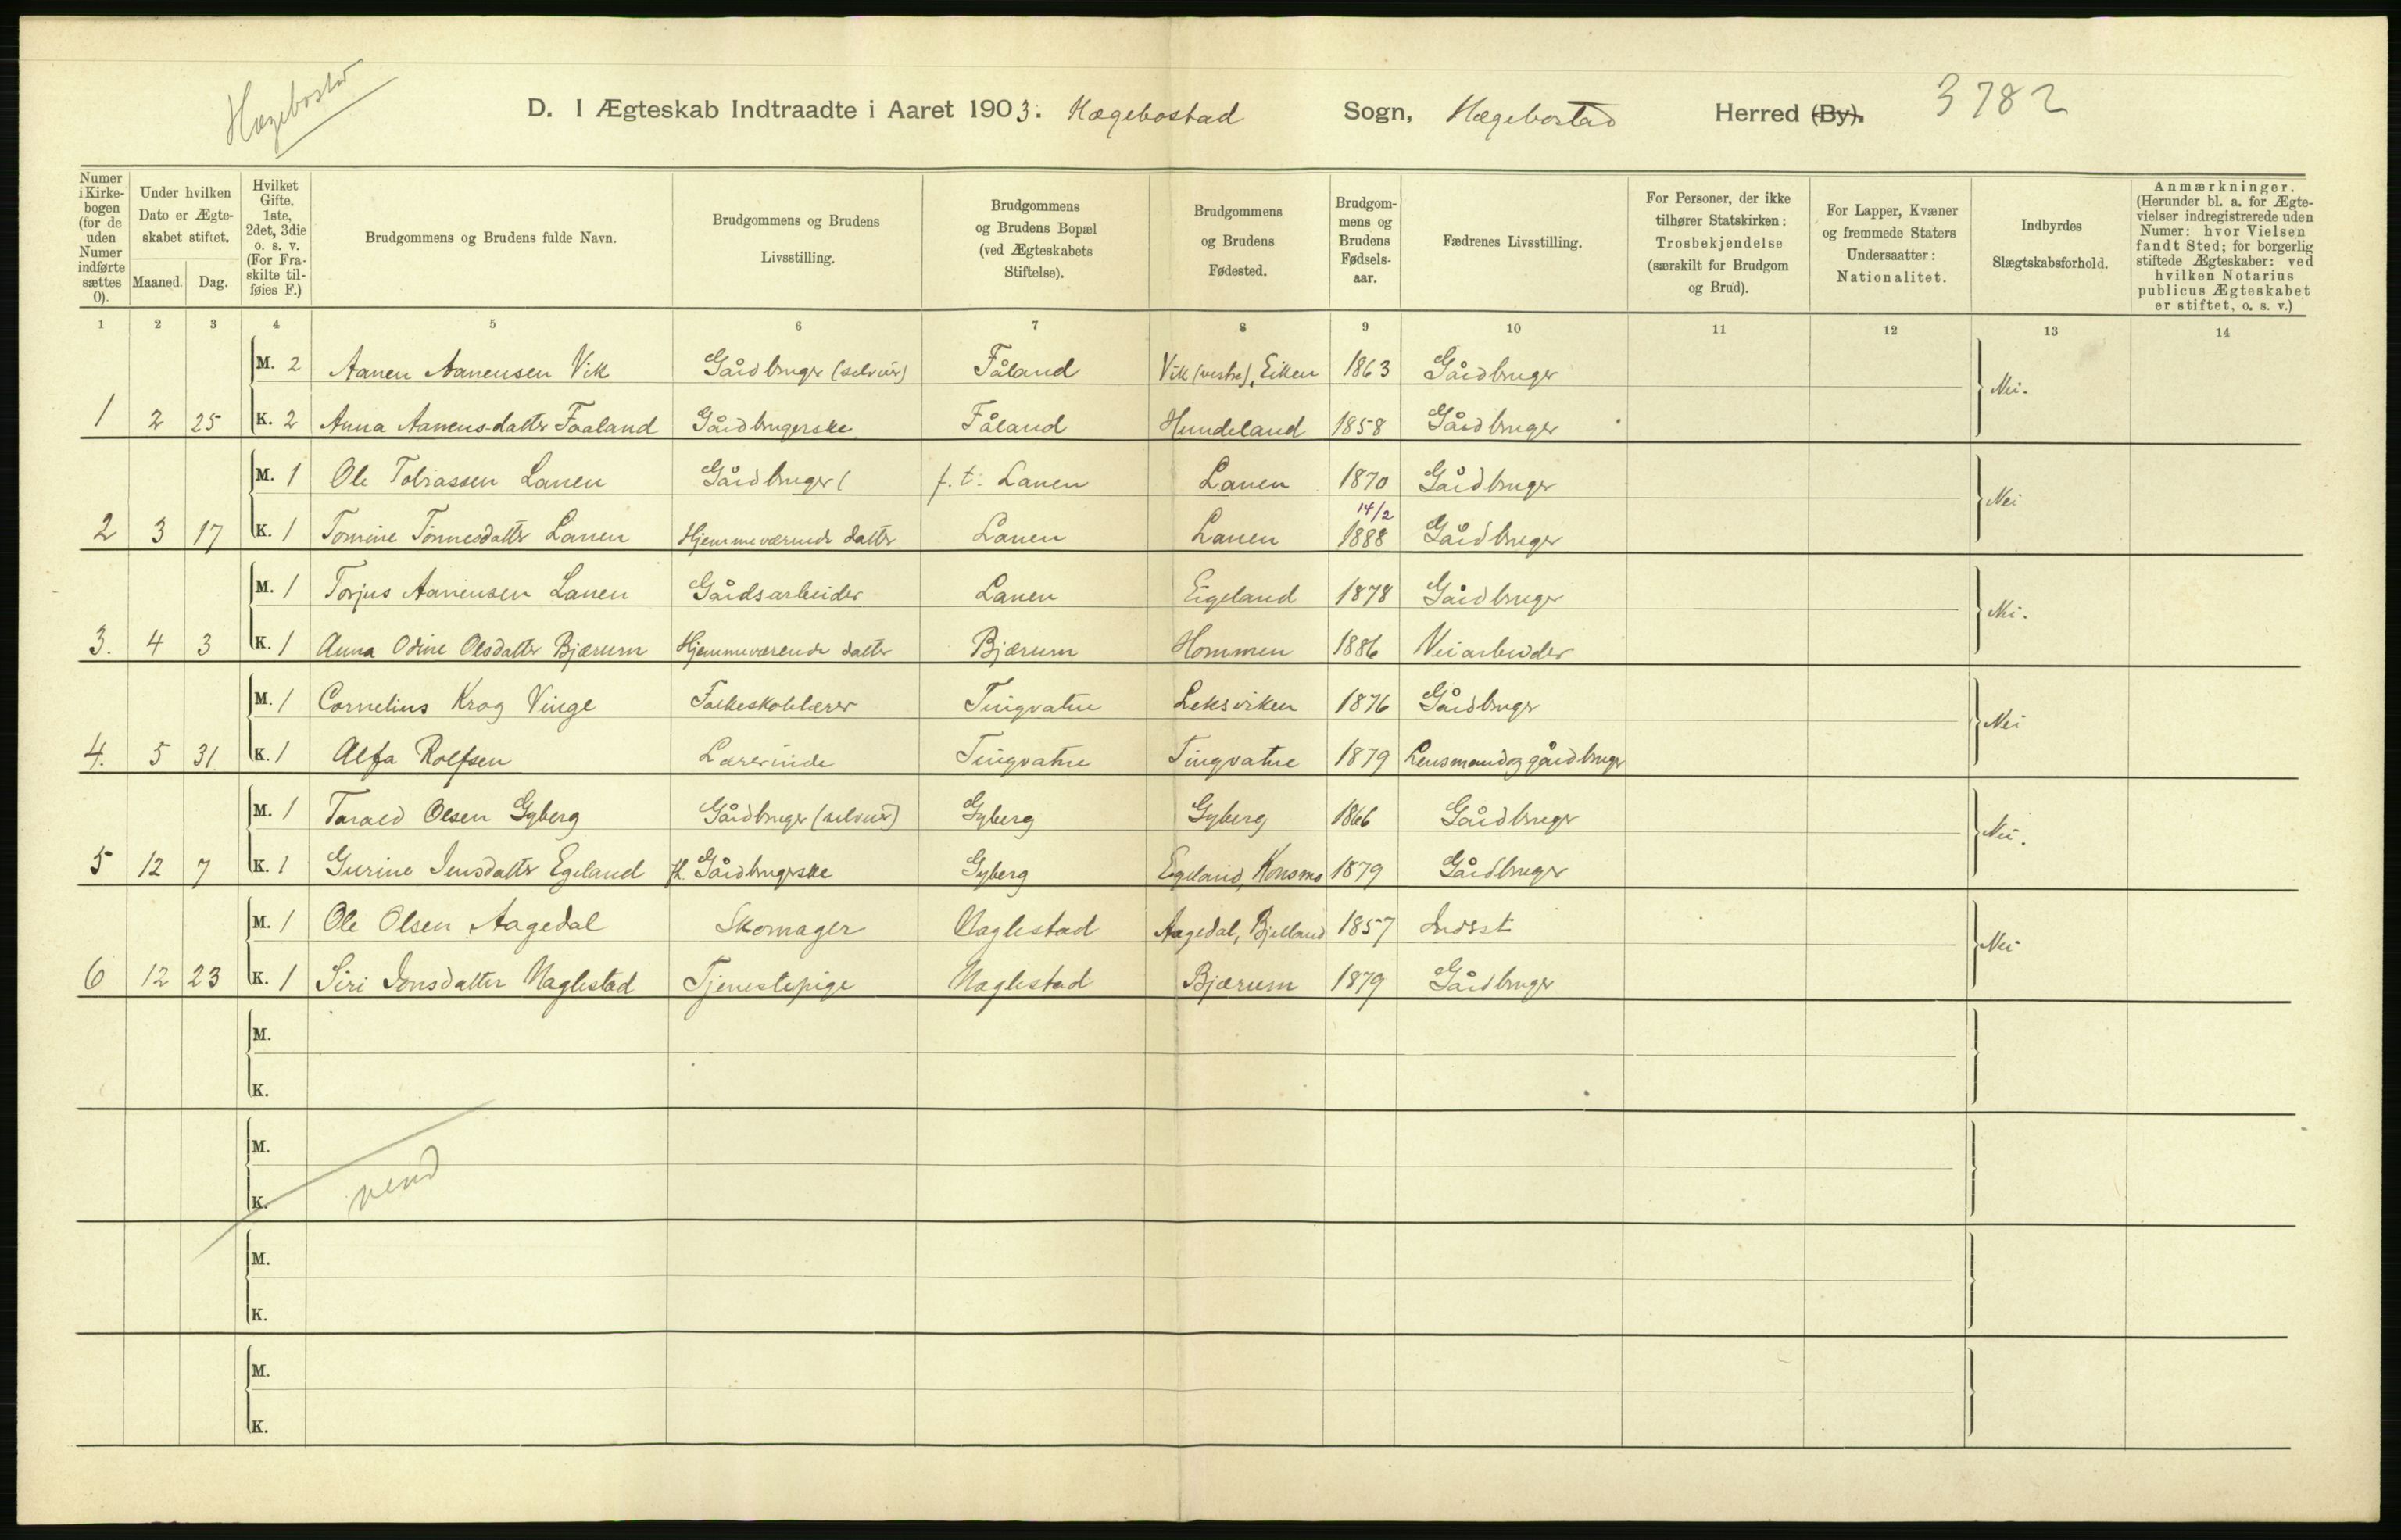 Hægebostad
D. I Ægteskab Indtraadte i Aaret 1903. Hægebostad Sogn, Hægebostad Herred (By). 3782
Numer i Kirkebogen (for de uden Numer indførte sættes 0).
Under hvilken Dato er Ægteskabet stiftet.
Maaned. Dag.
Hvilket Gifte. 1ste, 2det, 3die o. s. v. (For Fraskilte tilføies F.)
Brudgommens og Brudens fulde Navn.
Brudgommens og Brudens Livsstilling.
Brudgommens og Brudens Bopæl (ved Ægteskabets Stiftelse).
Brudgommens og Brudens Fødested.
Brudgommens og Brudens Fødselsaar.
Fædrenes Livsstilling.
For Personer, der ikke tilhører Statskirken: Trosbekjendelse (særskilt for Brudgom og Brud).
For Lapper, Kvæner og fremmede Staters Undersaatter: Nationalitet.
Indbyrdes Slægtskabsforhold.
Anmærkninger. (Herunder bl. a. for Ægtevielser indregistrerede uden Numer: hvor Vielsen fandt Sted; for borgerlig stiftede Ægteskaber: ved hvilken Notarius publicus Ægteskabet er stiftet, o. s. v.)
1 2 3 4 5 6 7 8 9 10 11 12 13 14
M. 2 Aanen Aanensen Vik Gårdbruger (selveier) Fåland Vik (vestre), Eiken 1863 Gårdbruger Nei.
1 2 25 K. 2 Anna Aanens-datter Faaland Gårdbrugerske Fåland Hundeland 1858 Gårdbruger
M. 1 Ole Tobiassen Lauen Gårdbruger ( f. t. Lauen Lauen 1870 Gårdbruger Nei
14/2
2 3 17 K. 1 Tomine Tønnesdatter Lauen Hjemmeværende datter Lauen Lauen 1888 Gårdbruger
M. 1 Torjus Aanensen Lauen Gårdsarbeider Lauen Eigeland 1878 Gårdbruger Nei.
3. 4 3 K. 1 Anna Odine Olsdatter Bjærum Hjemmeværende datter Bjærum Hommen 1886 Veiarbeider
M. 1 Cornelius Krog Vinge Folkeskolelærer Tingvatne Leksviken 1876 Gårdbruger Nei
4. 5 31 K. 1 Alfa Rolfsen Lærerinde Tingvatne Tingvatne 1879 Lensmand og gårdbruger
M. 1 Tarald Olsen Gyberg Gårdbruger (selveier) Gyberg Gyberg 1866 Gårdbruger Nei.
5 12 7 K. 1 Gurine Jensdatter Egeland Gårdbrugerske Gyberg Egeland, Konsmo 1879 Gårdbruger
M. 1 Ole Olsen Aagedal Skomager Naglestad Aagedal, Bjelland 1857 Inderst Nei
6 12 23 K. 1 Siri Jonsdatter Naglestad Tjenestepige Naglestad Bjærum 1879 Gårdbruger
M.
K.
M.
K.
vend
M.
K.
M.
K.